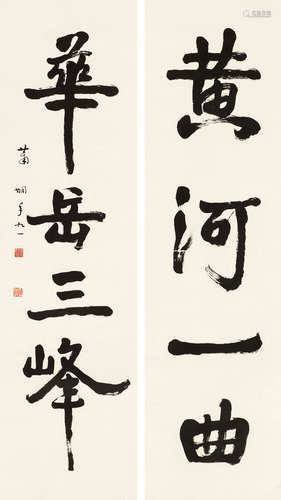 黄河一曲
華岳三峰
蕭嫻年九一